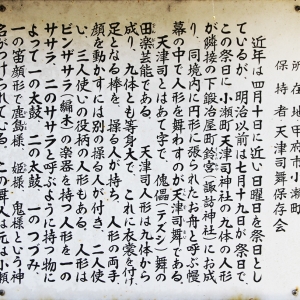 所在地 甲府市小瀬町
保持者 天津司舞保存会
近年は四月十日に近い日曜日を祭日とし
ているが、明治以前は七月十九日が祭日で、
この祭日に小瀬町天津司神社の九体の人形
が隣接の下鍛冶屋町鈴宮(諏訪神社)にお成
り、同境内に円形に張られたお舟と呼ぶ幔
幕の中で人形を舞わすのが天津司舞である。
天津司とはあて字で、傀儡(デズシ)舞の
田楽芸能である。 天津司人形は九体から
成り、九体とも等身大で、これに衣裳を付け、
足となる棒を、操る人が持ち、人形の両手
顔を動かすには別の操る人が付き、二人使
い、三人使いの役柄の人形もある。人形は
ビンザサラ(編木)の楽器を持つ人形を一の
ササラ、二のササラと呼ぶように持ち物に
よって一の太鼓、二の太鼓、一のつづみ、
一の笛顔形で鹿島様、姫様、鬼様という神
名がつけられている。この舞人は元は小瀬